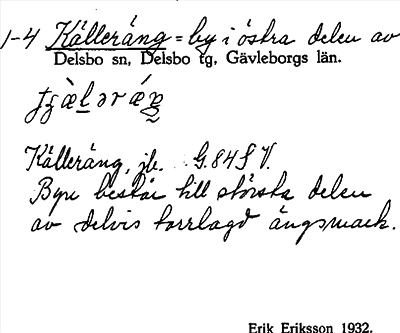 1-4 Källeräng = by i östra delen av
Delsbo sn, Delsbo tg, Gävleborgs län.
Källeräng, jb. G. 84 f V.
Byn består till största delen
av delvis torrlagd ängsmark.
Erik Eriksson 1932.